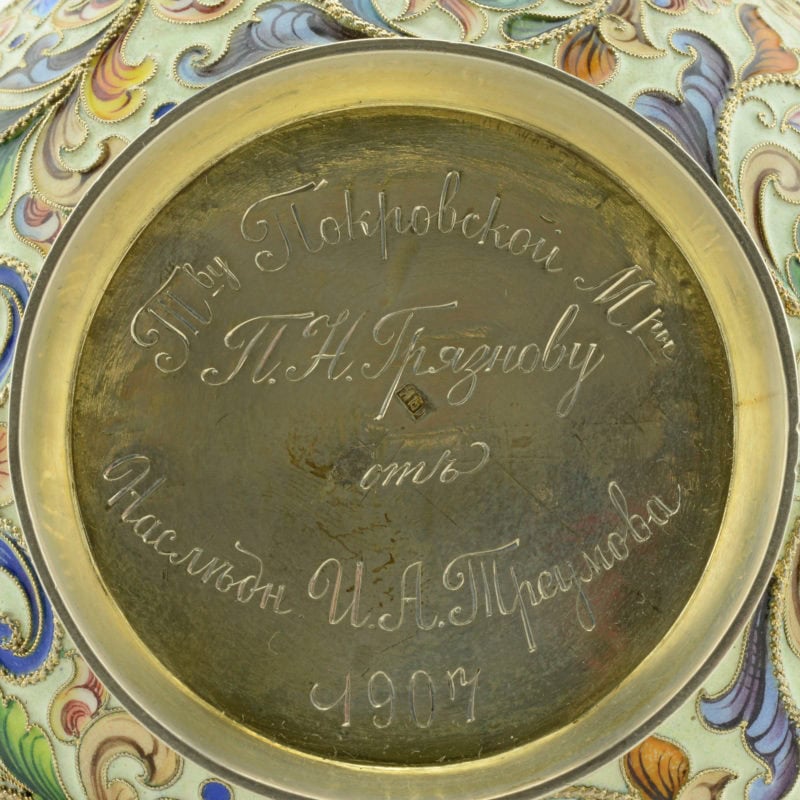 Тву Покровской Мры
П. Н. Грязнову
отъ
Наслѣдн И. А. Треумова
1907